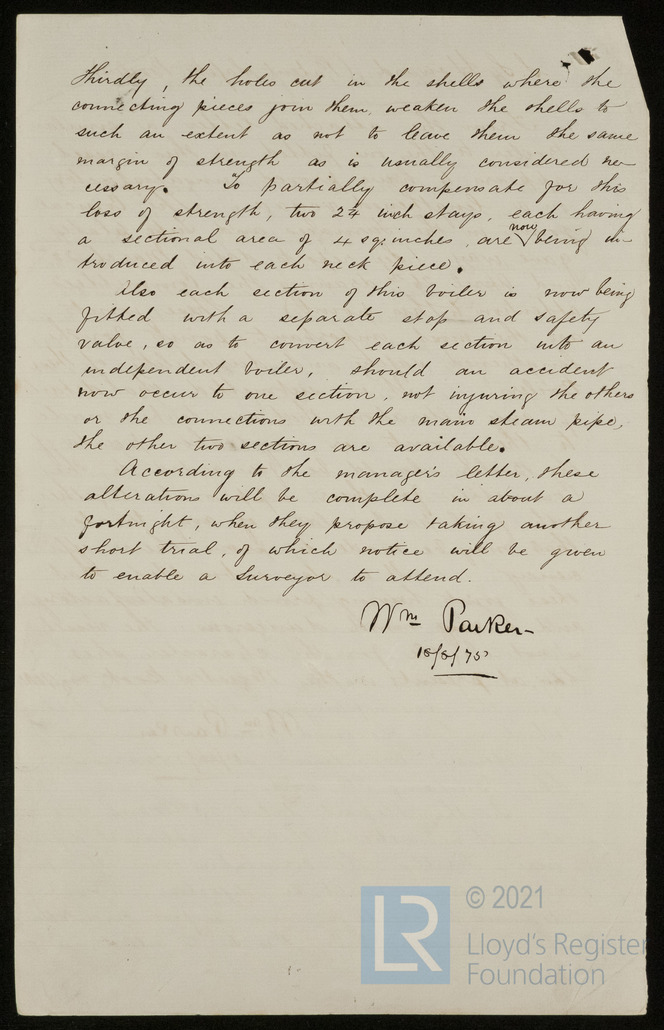 Thirdly, the holes cut in the shells where the
connecting pieces join them, weaken the shells to
such an extent as not to leave them the same
margin of strength as is usually considered ne-
cessary. To partially compensate for this
loss of strength, two 2¼ inch stays, each having
a sectional area of 4 sq: inches, are now being in-
troduced into each neck piece.
Also each section of this boiler is now being
fitted with a separate stop and safety
valve, so as to convert each section into an
independent boiler, should an accident
now occur to one section, not injuring the others
or the connections with the main steam pipe,
the other two sections are available.
According to the manager's letter, these
alterations will be complete in about a
fortnight, when they propose taking another
short trial, of which notice will be given
to enable a Surveyor to attend.
Wm Parker
18/8/75
LR
© 2021
Lloyd's Register
Foundation